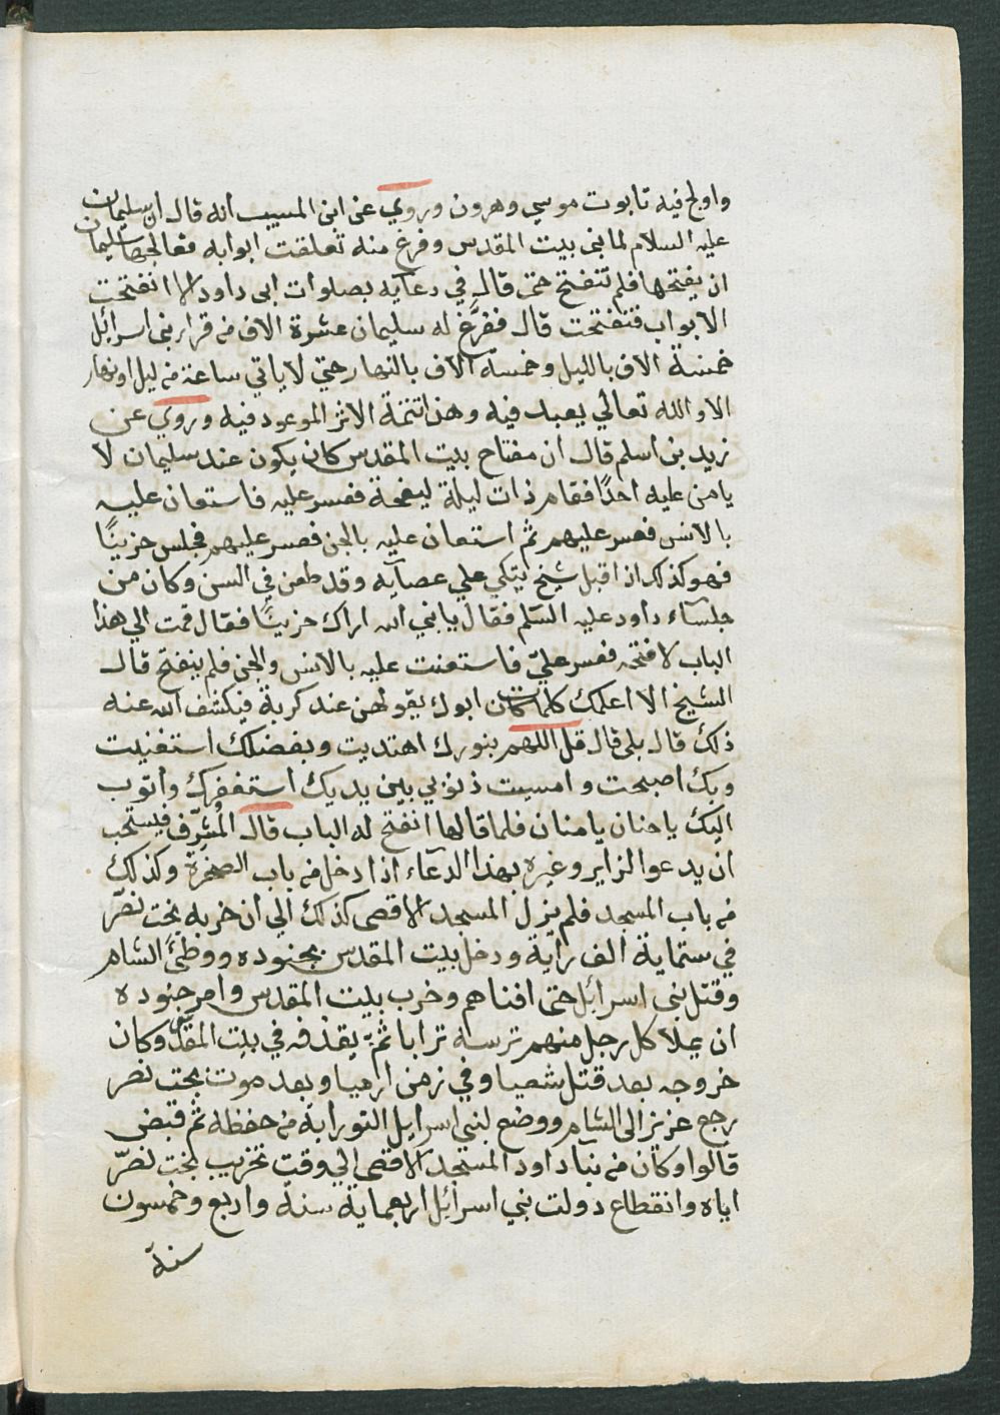 واولج فيه تابوت موسي وهرون وروي عن ابن المسيب انه قال ان سليمان
عليه السلام لما بني بيت المقدس وفرغ منه تعلقت ابوابه فعالجها سليمان
ان يفتحها فلم تنفتح حتى قال في دعايه بصلوات ابى داود الا انفتحت
الابواب فتفتحت قال ففرغ له سليمان عشرة الاف من قرار بنى اسرائل
خمسة الاف بالليل وخمسة الاف بالنهار حتي لا ياتي ساعة من ليل او نهار
الا والله تعالي يعبد فيه وهذا تتمة الاثر الموعود فيه وروي عن
زيد بن اسلم قال ان مفتاح بيت المقدس كان يكون عند سليمان لا
يامن عليه احدًا فقام ذات ليلة ليفتحة فعسر عليه فاستعان عليه
بالانس فعسر عليهم ثم استعان عليه بالجن فعسر عليهم فجلس حزينًا
فهو كذلك اذ اقبل شيخ يتكي علي عصآيه وقد طعن في السن وكان من
جلسآء داود عليه السّلم فقال يا نبي الله اراك حزينًا فقال قمت الي هذا
الباب لافتحه فعسر عليّ فاستعنت عليه بالانس والجن فلم ينفتح قال
الشيخ الا اعلمك كلمات كان ابوك يقولهن عند كربة فيكشف الله عنه
ذلك قال بلى قال قل اللهم بنورك اهتديت وبفضلك استغنيت
وبك اصبحت وامسيت ذنوبي بين يديك استغفرك واتوب
اليك يا حنان يا منان فلما قالها انفتح له الباب قال المُشرّف فيستحب
ان يدعوا الزاير وغيره بهذا الدعآء اذا دخل من باب الصخرة وكذلك
من باب المسجد فلم يزل المسجد الاقصى كذلك الي ان خربه بخت نصّر
في ستماية الف راية ودخل بيت المقدس بجنوده ووطئ الشام
وقتل بنى اسرائل حتى افناهم وخرب بيت المقدس وامر جنوده
ان يملا كل رجل منهم ترسه ترابا ثم يقذفه في بيت المقدس وكان
خروجه بعد قتل شعيا وفي زمن ارميا وبعد موت بخت نصر
رجع عزيز الى الشام ووضع لبني اسرايل التوراية من حفظه ثم قبض
قالوا وكان من بنا داود المسجد الاقصى الي وقت تخريب بخت نصّر
اياه وانقطاع دولت بني اسرائل اربعماية سنة واربع وخمسون
سنة